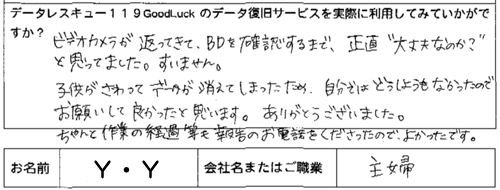 データレスキュー119GoodLuck のデータ復旧サービスを実際に利用してみていかがで
すか?
ビデオカメラが 返ってきて、BDを確認するまで、正直"大丈夫なのか?"
と思ってました。すいません。
子供がさわって データが消えてしまったため、自分ではどうしようもなかったので
お願いして良かったと思います。 ありがとうございました。
ちゃんと作業の経過等も報告のお電話をくださったので、よかったです。
お名前 Y・Y 会社名またはご職業 主婦